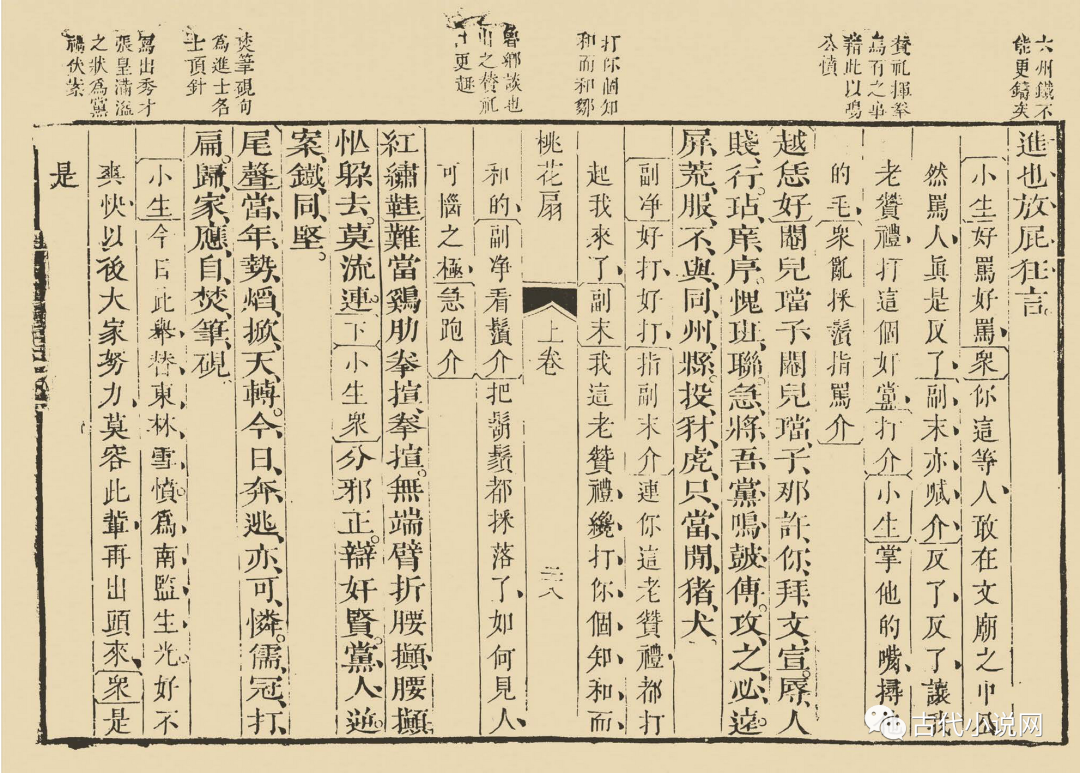 六州鐵不
能更鑄矣
贊礼揮拳
爲有之事
藉此以鳴
公憤
打你個知
和而和鄒
魯鄉談也
出之贊礼
更趣
焚筆硯句
爲進士名
士頂針
寫出秀才
張皇滿溢
之狀爲黨
禍伏案
進也放屁狂言。
小生好罵好罵衆你這等人敢在文廟之中公
然罵人眞是反了副末亦喊介反了反了讓我
老贊禮打這個奸黨打介小生掌他的嘴撏他
的毛衆亂採鬚指罵介
越恁好閹兒璫子閹兒璫子那許你拜文宣辱人
賤行玷庠序愧班聯急將吾黨鳴鼓傳攻之必遠
屏荒服不與同州縣投豺虎只當閒猪犬
副净好打好打指副末介連你這老贊禮都打
起我來了副末我這老贊禮纔打你個知和而
桃花扇 上卷 三八
和的副净看鬚介把鬍鬚都採落了如何見人
可惱之極急跑介
紅繡鞋難當鷄肋拳揎拳揎無端臂折腰攧腰攧
忙躱去莫流連。下小生衆分邪正辯奸賢。黨人逆
案鐵同堅。
尾聲當年勢焰掀天轉今日奔逃亦可憐。儒冠打
扁歸家應自焚筆硯
小生今日此舉替東林雪憤爲南監生光好不
爽快以後大家努力莫容此輩再出頭來衆是
是
古代小说网